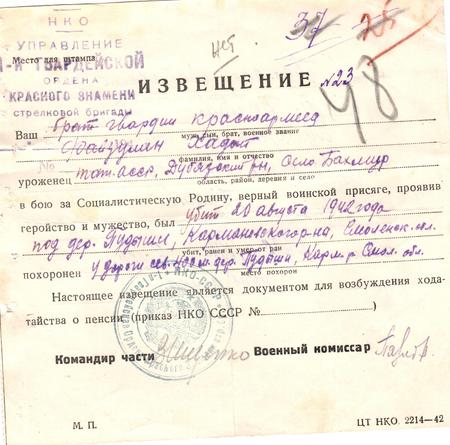 НКО
УПРАВЛЕНИЕ
Место для штампа
ГВАРДЕЙСКОЙ
ОРДЕНА
КРАСНОГО ЗНАМЕНИ
стрелковой бригады
Нет
37
25
48
ИЗВЕЩЕНИЕ №23
Ваш брат гвардии красноармеец
муж, сын, брат, военное звание
фамилия, имя и отчество
уроженец Тат. асср, Дубязский р-н, село
область, район, деревня и село
в бою за Социалистическую Родину, верный воинской присяге, проявив
геройство и мужество, был убит 20 августа 1942 года
под дер. Пудыши, Кармановского р-на, Смоленск. обл.
убит, ранен и умер от ран
похоронен у дороги сев. 400 м. дер. Пудыши, Карм. р. Смол. обл.
место похорон
Настоящее извещение является документом для возбуждения хода-
тайства о пенсии (приказ НКО СССР №
)
Командир части
Военный комиссар
М. П.
ЦТ НКО. 2214—42